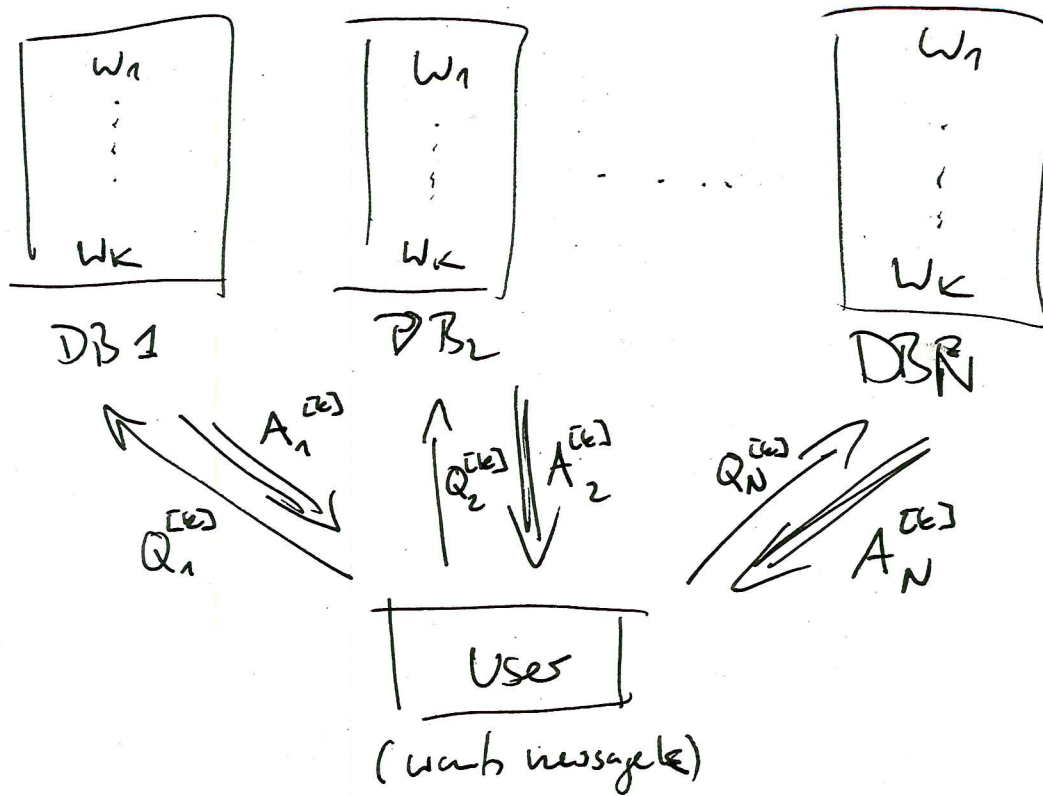 W₁ W₁ W₁
WK WK WK
DB1 DB₂ DBN
A₁^[k] Q₂^[k] A₂^[k] Q_N^[k]
Q₁^[k] A_N^[k]
User
(wants message k)